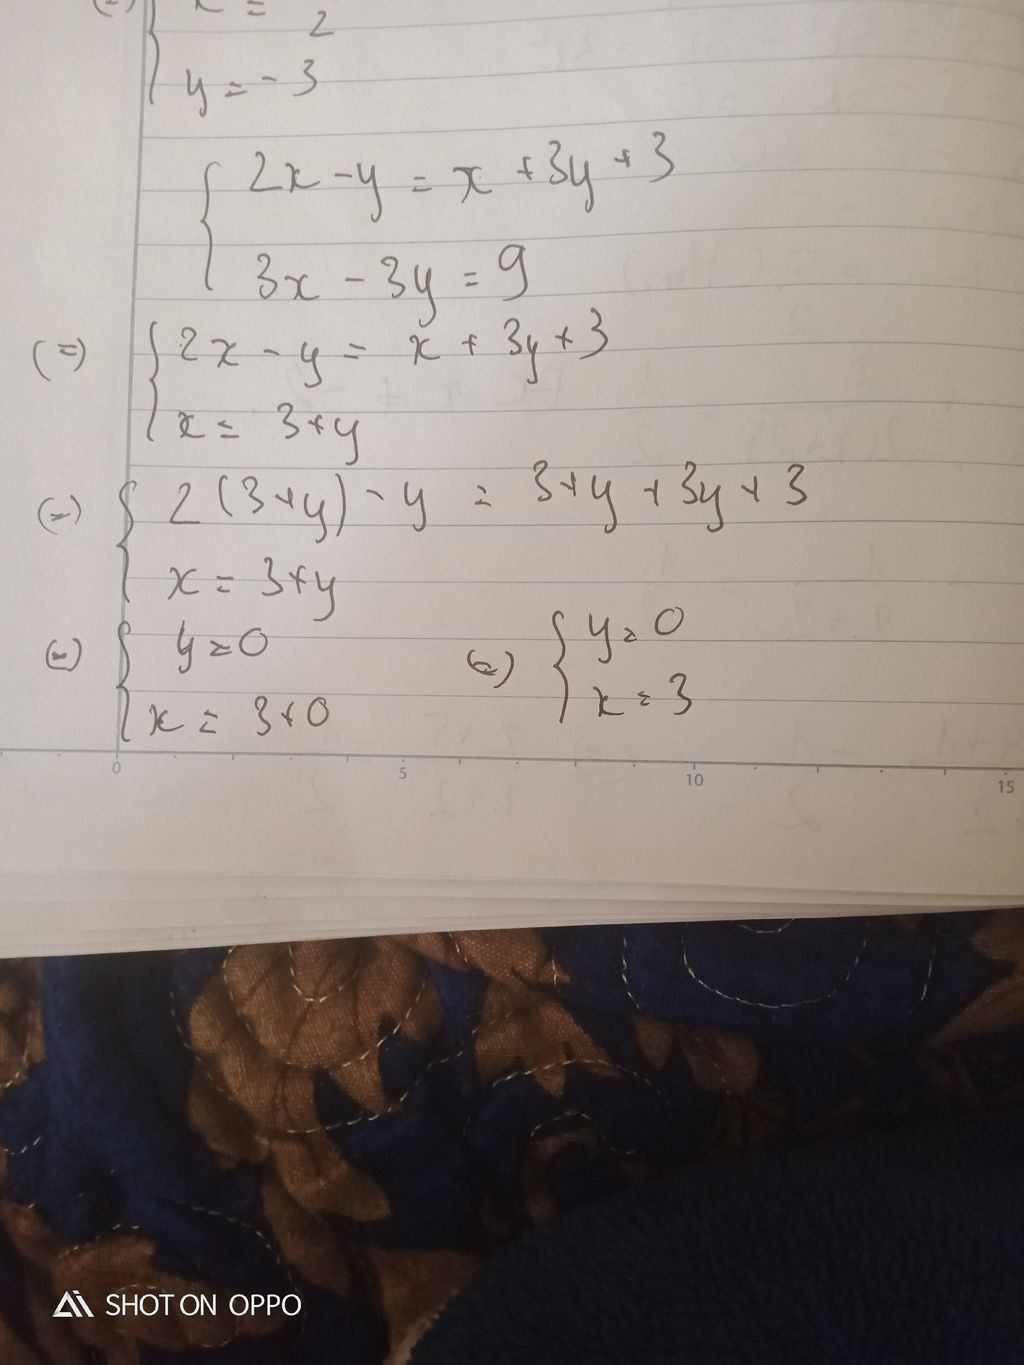 x =
2
y = -3
{ 2x - y = x + 3y + 3
3x - 3y = 9
(=) { 2x - y = x + 3y + 3
x = 3 + y
(=) { 2(3+y) - y = 3+y + 3y + 3
x = 3+y
(=) { y = 0 (=) { y = 0
x = 3+0 x = 3
0 5 10 15
SHOT ON OPPO